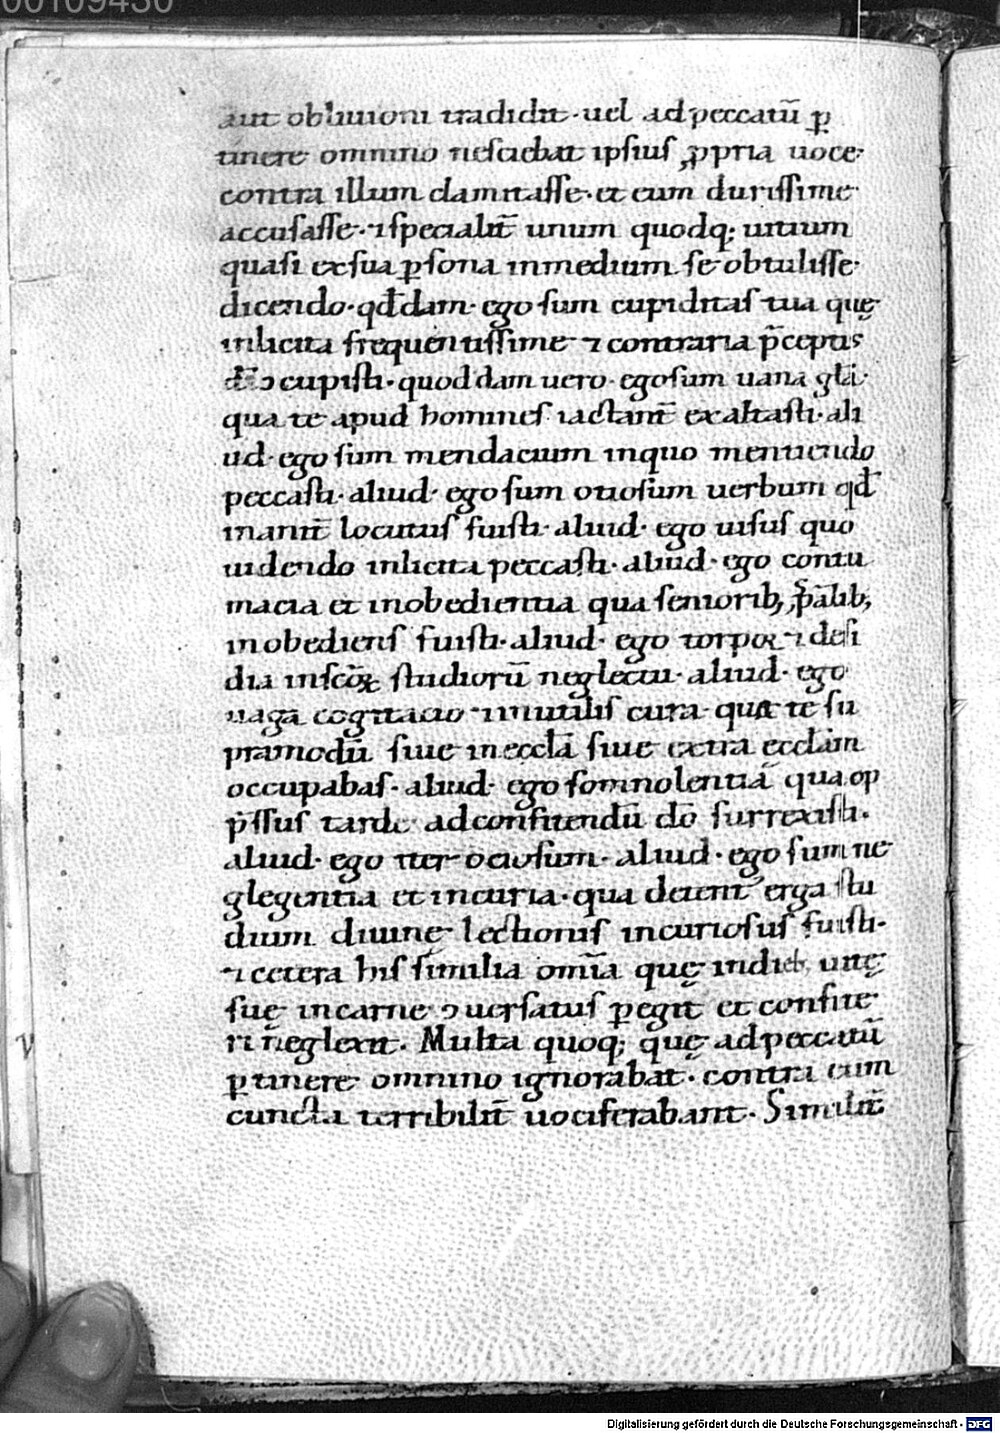 00109430
aut obliuioni tradidit · uel ad peccatū ꝑ
tinere omnino nesciebat ipsius ꝓpria uoce ·
contra illum clamitasse · et eum durissime
accusasse · ⁊ specialit̄ unum quodq; uitium
quasi ex sua ꝑsona in medium se obtulisse ·
dicendo · qd̄dam · ego sum cupiditas tua quę
inlicita frequentissime ⁊ contraria p̄ceptis
dī ↄcupisti · quoddam uero · ego sum uana glā ·
qua te apud homines iactant̄ exaltasti · ali
ud · ego sum mendacium in quo mentiendo
peccasti · aliud · ego sum otiosum uerbum qd̄
inanit̄ locutus fuisti · aliud · ego uisus quo
uidendo inlicita peccasti · aliud · ego contu
macia et inobedientia qua seniorib; sp̄alib;
inobediens fuisti · aliud · ego torpor ⁊ desi
dia in scōꝝ studiorū neglectu · aliud · ego
uaga cogitatio ⁊ inutilis cura qua te su
pra modū siue in ecclā siue extra ecclām
occupabas · aliud · ego somnolentia qua op
p̄ssus tarde ad confitendū dō surrexisti ·
aliud · ego iter ociosum · aliud · ego sum ne
glegentia et incuria · qua detent' erga stu
dium diuinę lectionis incuriosus fuisti ·
⁊ cetera his similia om̄ia quę in dieb; uitę
suę in carne ↄuersatus ꝑegit et confite
ri neglexit . Multa quoq; quę ad peccatū
ꝑtinere omnino ignorabat · contra eum
cuncta terribilit̄ uociferabant · Similit̄
Digitalisierung gefördert durch die Deutsche Forschungsgemeinschaft - DFG